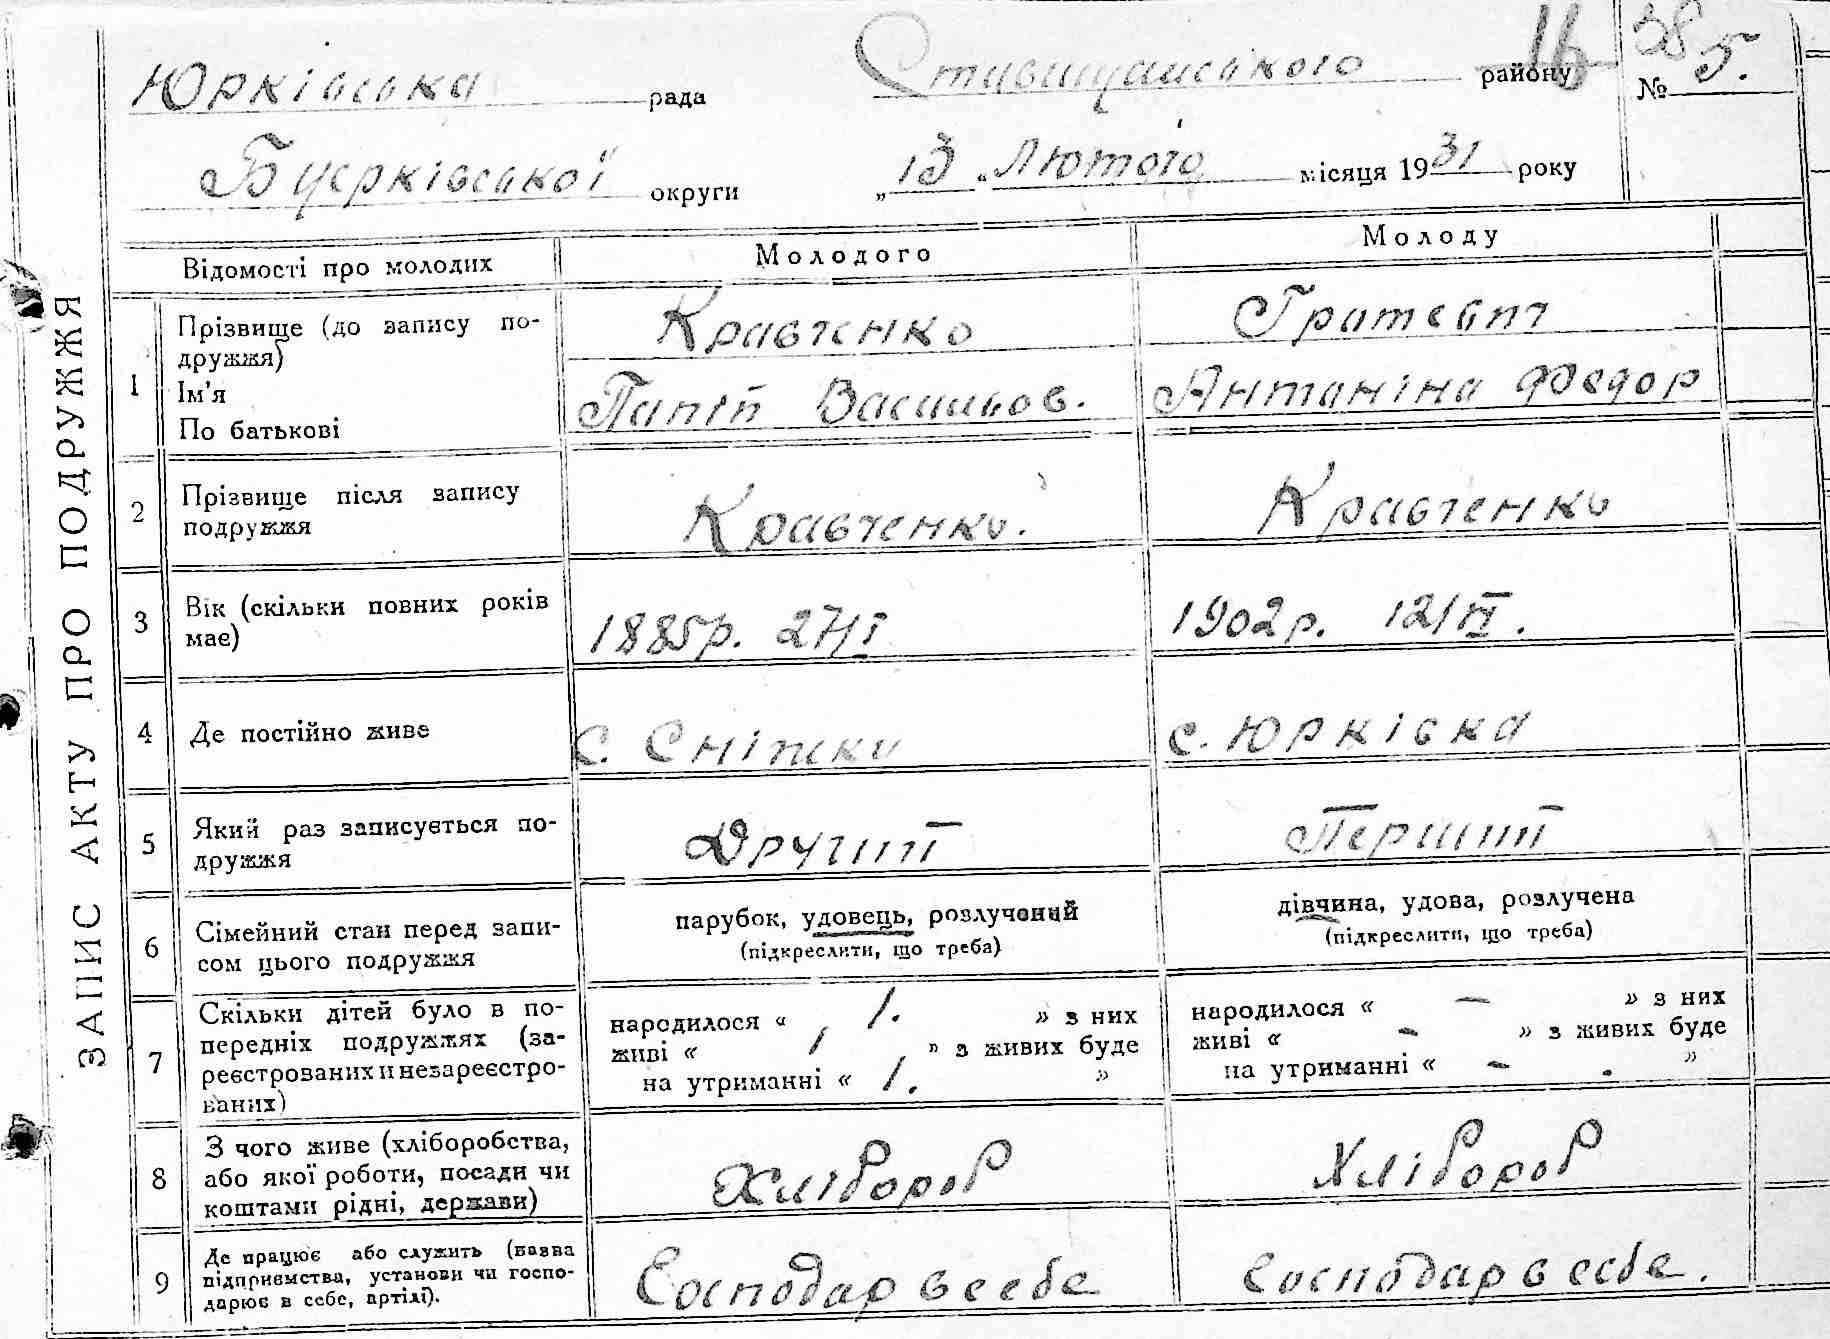 16 38
Юрківська рада Ставищанського району № 5.
Буцрківської округи „13“ Лютого місяця 1931 року
ЗАПИС АКТУ ПРО ПОДРУЖЖЯ
Відомості про молодих Молодого Молоду
1 Прізвище (до запису по-
дружжя) Кравченко
Ім’я
По батькові Васильов. Антаніна Федор
2 Прізвище після запису
подружжя Кравченко. Кравченко
3 Вік (скільки повних років
має) 1885р. 27/I 1902р. 12/VI.
4 Де постійно живе С. Сніжки с. Юрківка
5 Який раз записується по-
дружжя Другий Перший
6 Сімейний стан перед запи-
сом цього подружжя
парубок, удовець, розлучений
(підкреслити, що треба)
дівчина, удова, розлучена
(підкреслити, що треба)
7 Скільки дітей було в по-
передніх подружжях (за-
реєстрованих и незареєстро-
ваних)
народилося « 1. » з них
живі « 1 » з живих буде
на утриманні « 1. »
народилося « – » з них
живі « – » з живих буде
на утриманні « – . »
8 З чого живе (хліборобства,
або якої роботи, посади чи
коштами рідні, держави) Хлібороб Хлібороб
9 Де працює або служить (назва
підприємства, установи чи госпо-
дарює в себе, артілі). Господар в себе Господар в себе.